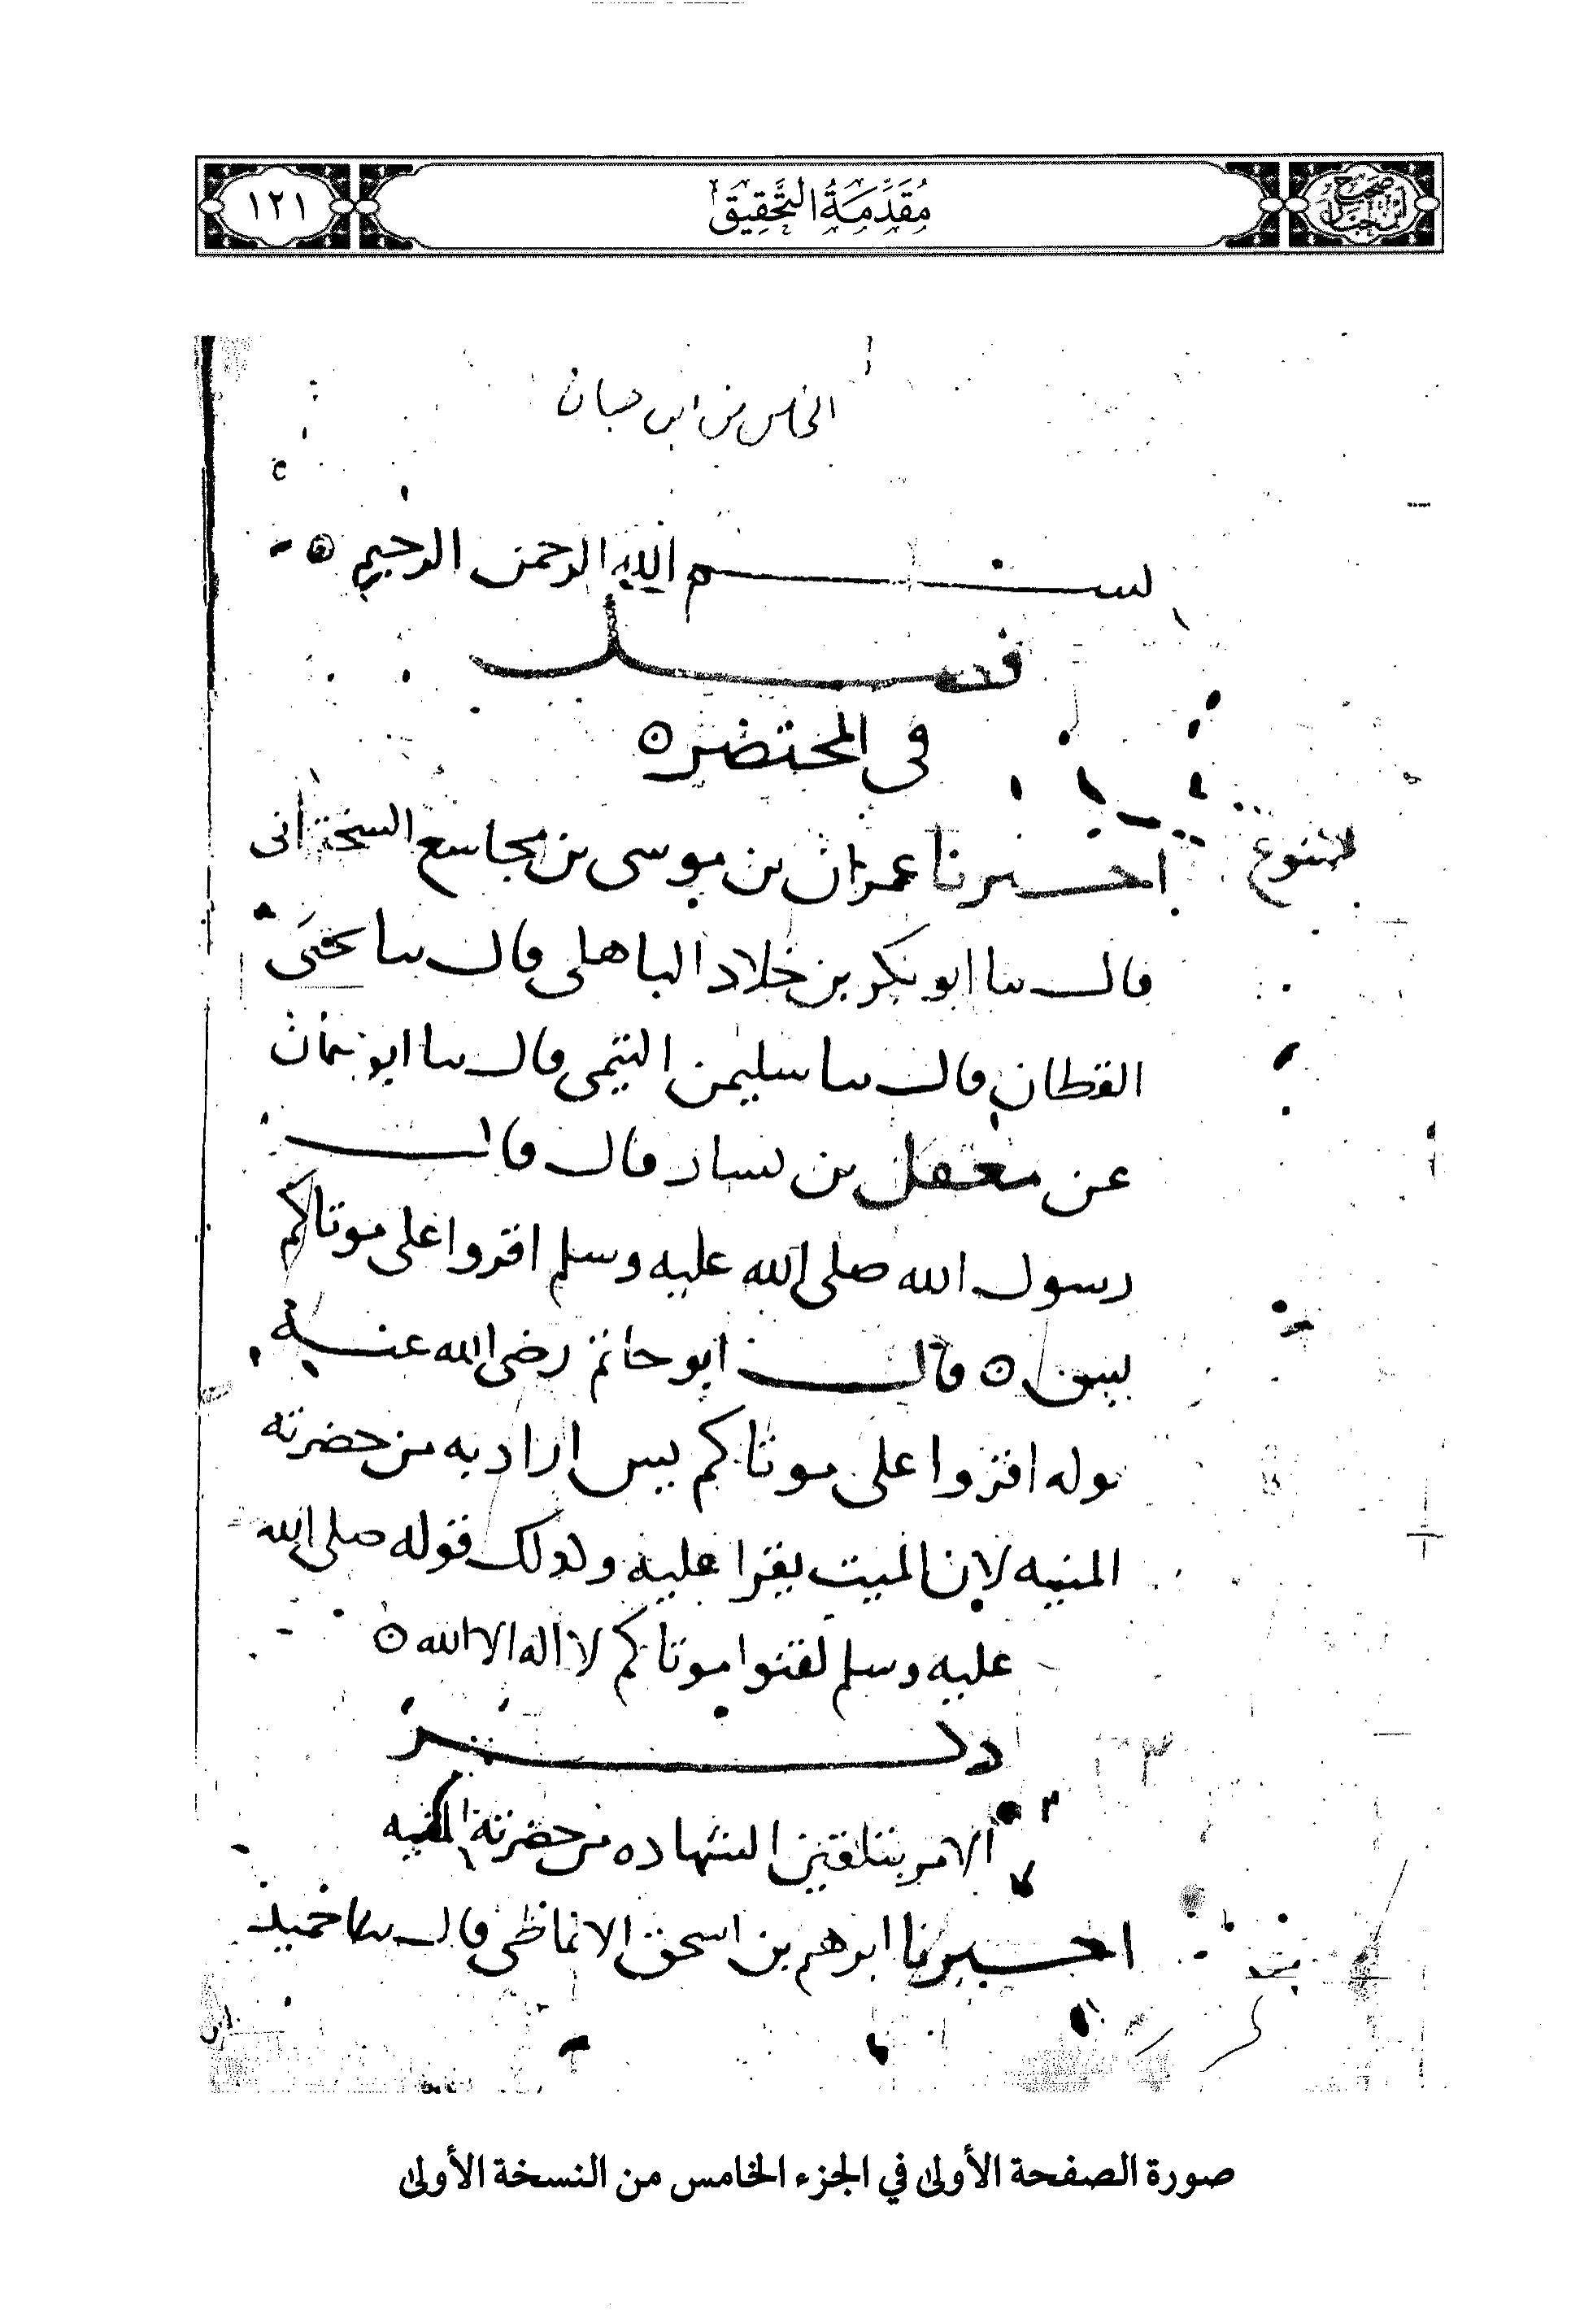 صحيح ابن حبان
مُقَدِّمَةُ التَّحْقِيقِ
١٢١
الخامس من ابن حبان
بسم الله الرحمن الرحيم
فصل
في المحتضر
اخبرنا عمران بن موسى بن مجاشع السختيانى
قال سا ابو بكر بن خلاد الباهلى قال سا يحيى
القطان قال سا سليمن التيمى قال سا ابو عثمان
عن معقل بن يسار قال قال
رسول الله صلى الله عليه وسلم اقروا على موتاكم
يس ٥ قال ابو حاتم رضى الله عنه
قوله اقروا على موتاكم يس اراد به من حضرته
المنيه لان الميت يقرا عليه وكذلك قوله صلى الله
عليه وسلم لقنوا موتاكم لا اله الا الله ٥
ذكر
الامر بتلقين الشهاده من حضرته المنيه
اخبرنا ابرهم بن اسحق الانماطى قال سا حميد
صورة الصفحة الأولى في الجزء الخامس من النسخة الأولى